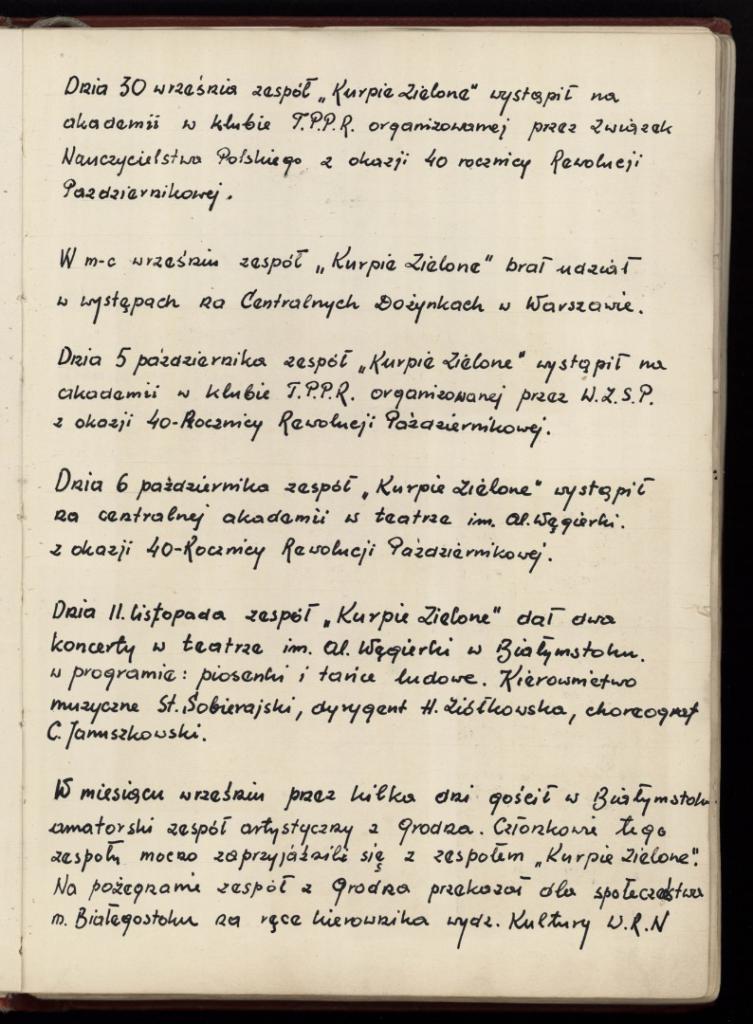 Dnia 30 września zespół „Kurpie Zielone" wystąpił na
akademii w klubie T.P.P.R. organizowanej przez Związek
Nauczycielstwa Polskiego z okazji 40 rocznicy Rewolucji
Październikowej.
W m-c wrześniu zespół „Kurpie Zielone" brał udział
w występach na Centralnych Dożynkach w Warszawie.
Dnia 5 października zespół „Kurpie Zielone" wystąpił na
akademii w klubie T.P.P.R. organizowanej przez W.Z.S.P.
z okazji 40-Rocznicy Rewolucji Październikowej.
Dnia 6 października zespół „Kurpie Zielone" wystąpił
na centralnej akademii w teatrze im. Al. Węgierki.
z okazji 40-Rocznicy Rewolucji Październikowej.
Dnia 11. listopada zespół „Kurpie Zielone" dał dwa
koncerty w teatrze im. Al. Węgierki w Białymstoku.
w programie: piosenki i tańce ludowe. Kierownictwo
muzyczne St. Sobierajski, dyrygent H. Ziółkowska, choreograf
C. Januszkowski.
W miesiącu wrześniu przez kilka dni gościł w Białymstoku
amatorski zespół artystyczny z Grodna. Członkowie tego
zespołu mocno zaprzyjaźnili się z zespołem „Kurpie Zielone".
Na pożegnanie zespół z Grodna przekazał dla społeczeństwa
m. Białegostoku na ręce kierownika wydz. Kultury W.R.N